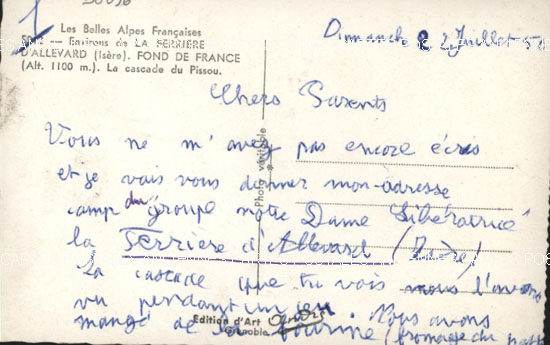 Les Belles Alpes Françaises
Environs de LA FERRIERE
D'ALLEVARD (Isère). FOND DE FRANCE
(Alt. 1100 m.). La cascade du Pissou.
Dimanche 2 Juillet
Chers Parents
Vous ne m'avez pas encore écris
et je vais vous donner mon adresse
camp du groupe notre Dame Libératrice
la Ferrière d'Allevard
La cascade que tu vois nous l'avons
vu pendant un jeu. Nous avons
mangé de la tourme (fromage du
Photo véritable
Edition d'Art
Grenoble